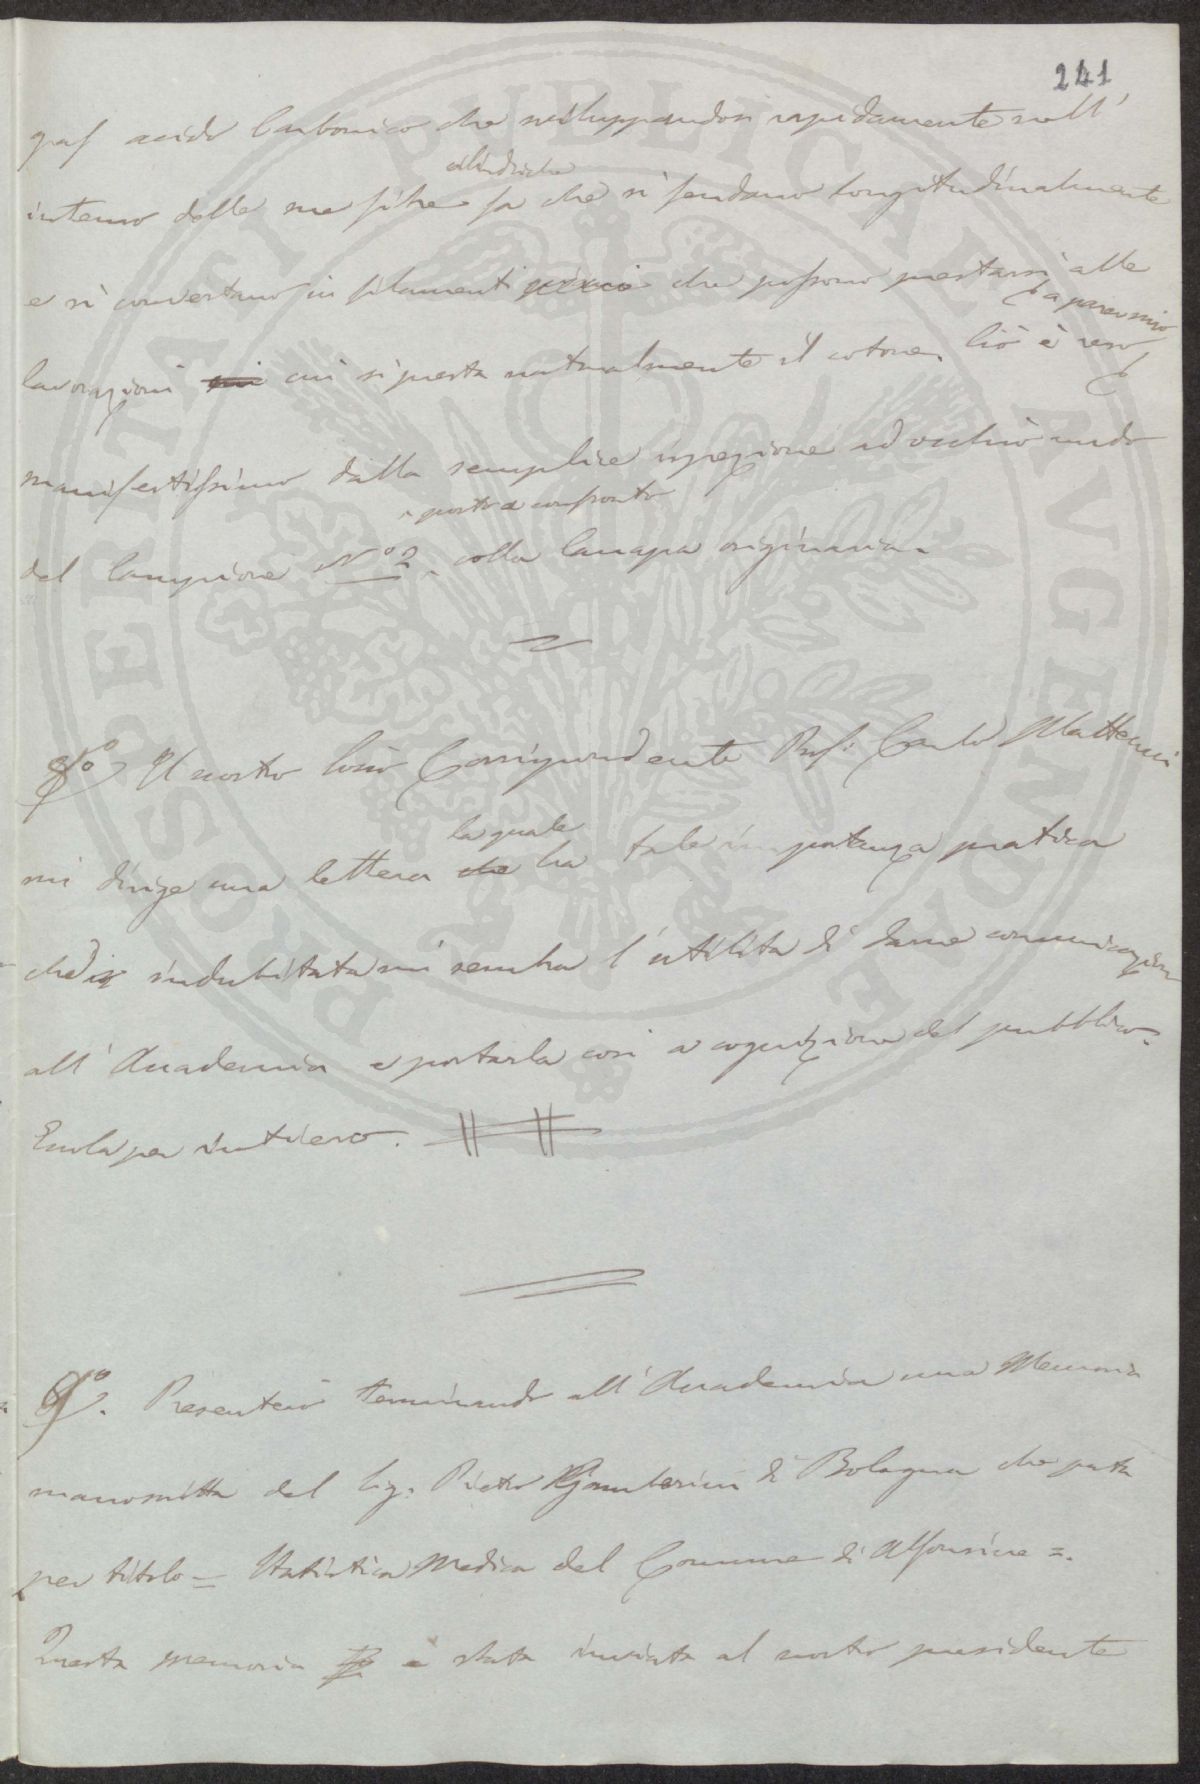 241
gas acido Carbonico che sviluppandosi rapidamente nell'
cilindriche
interno delle sue fibre fa che si fendano longitudinalmente
e si convertano in filamenti che possono prestarsi alle
a parer mio
lavorazioni cui si presta naturalmente il cotone. Ciò è reso
manifestissimo dalla semplice ispezione ad occhio nudo
posto a confronto
del Campione N.° 2 colla Canapa originaria.
8° Il nostro Socio Corrispondente Prof. Carlo Matteucci
la quale
mi dirige una lettera che ha tale importanza pratica
che indubitata mi sembra l'utilità di darne comunicazione
all'Accademia e portarla così a cognizione del pubblico.
Eccola per intiero.
9°. Presenterò terminando all'Accademia una Memoria
manoscritta del Sig. Pietro Gamberini di Bologna che porta
per titolo = Statistica Medica del Comune di Alfonsine =.
Questa memoria è stata inviata al nostro presidente
PROSPERITATI PUBLICAE AUGENDAE